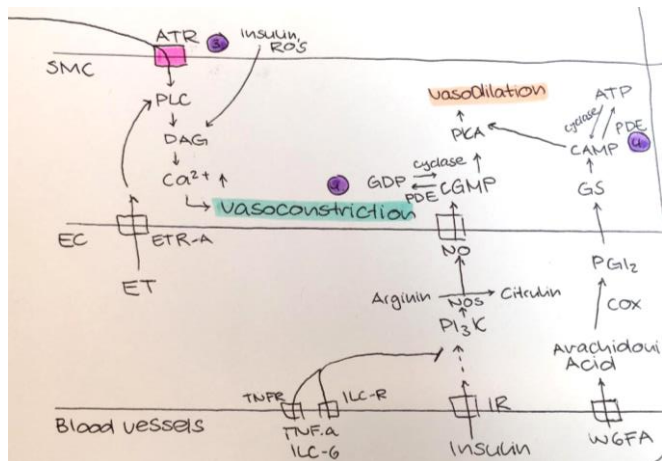 ATR
3
insulin,
ROS
SMC
PLC
DAG
Ca²⁺ ↑
vasoconstriction
vasodilation
PKA
ATP
cyclase
PDE
4
CAMP
GS
2
GDP
cyclase
PDE
CGMP
EC
ETR-A
ET
NO
Arginin
NOS
Citrulin
PI₃K
PGI₂
COX
Arachidoni
Acid
TNFR
ILC-R
IR
Blood vessels
TNF.a
ILC-6
Insulin
W6FA